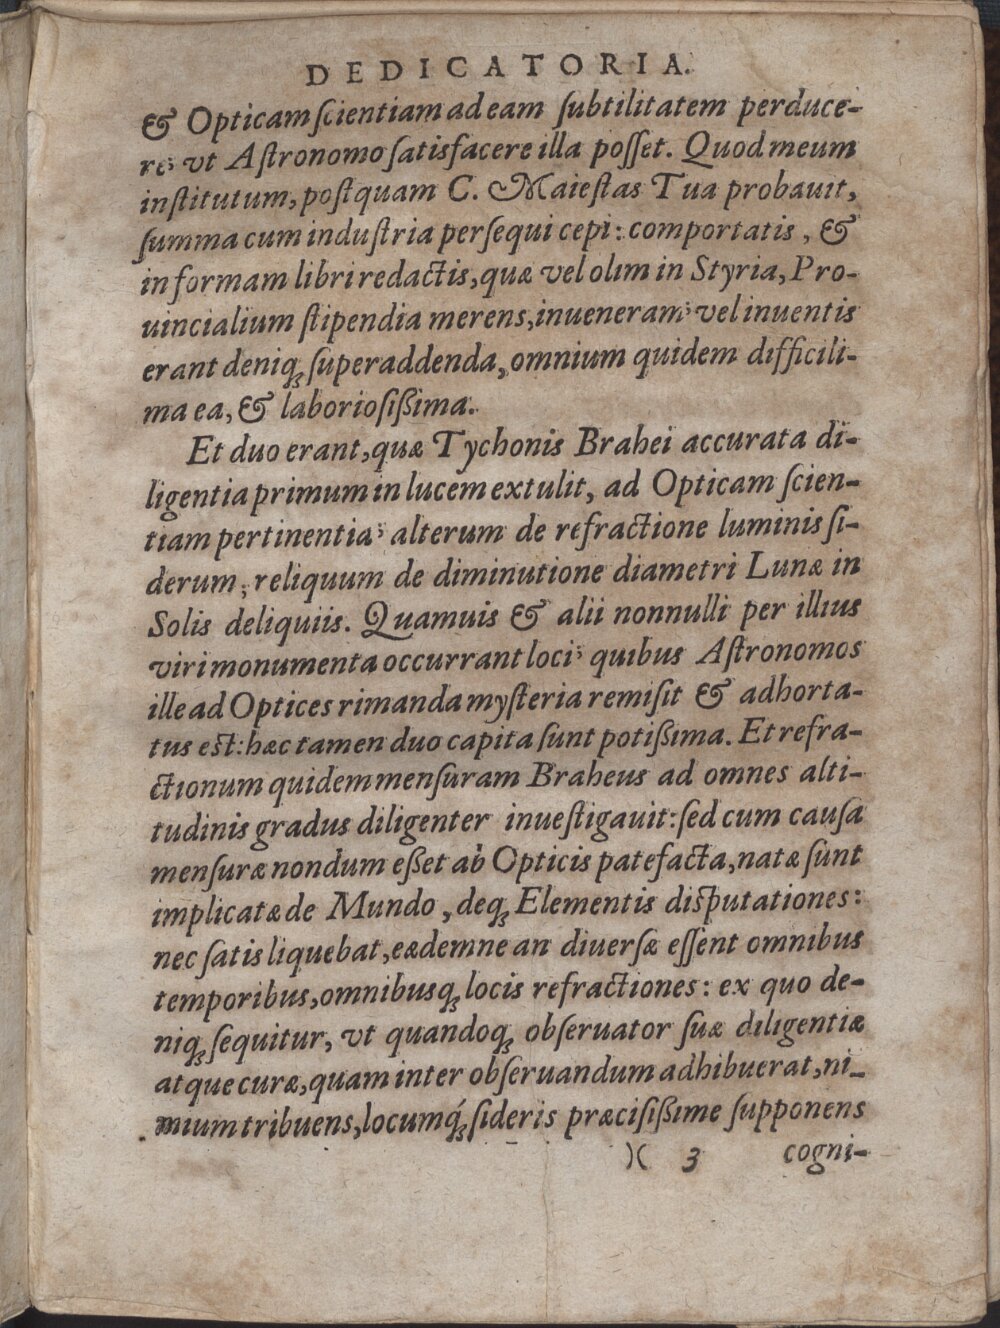 DEDICATORIA.
& Opticam ſcientiam ad eam ſubtilitatem perduce-
re vt Aſtronomo ſatisfacere illa poſſet. Quod meum
inſtitutum, poſtquam C. Maieſtas Tua probauit,
ſumma cum induſtria perſequi cepi: comportatis, &
in formam libri redactis, quæ vel olim in Styria, Pro-
uincialium ſtipendia merens, inueneram; vel inuentis
erant deniq; ſuperaddenda, omnium quidem difficili-
ma ea, & laborioſißima.
Et duo erant, quæ Tychonis Brahei accurata di-
ligentia primum in lucem extulit, ad Opticam ſcien-
tiam pertinentia; alterum de refractione luminis ſi-
derum, reliquum de diminutione diametri Lunæ in
Solis deliquiis. Quamuis & alii nonnulli per illius
viri monumenta occurrant loci; quibus Aſtronomos
ille ad Optices rimanda myſteria remiſit & adhorta-
tus est: hæc tamen duo capita ſunt potißima. Et refra-
ctionum quidem menſuram Braheus ad omnes alti-
tudinis gradus diligenter inueſtigauit: ſed cum cauſa
menſuræ nondum eßet ab Opticis patefacta, natæ ſunt
implicatæ de Mundo, deq; Elementis diſputationes:
nec ſatis liquebat, eædemne an diuerſæ eſſent omnibus
temporibus, omnibusq; locis refractiones: ex quo de-
niq; ſequitur, vt quandoq; obſeruator ſuæ diligentiæ
atque curæ, quam inter obſeruandum adhibuerat, ni-
mium tribuens, locumq́; ſideris præciſißime ſupponens
)( 3 cogni-